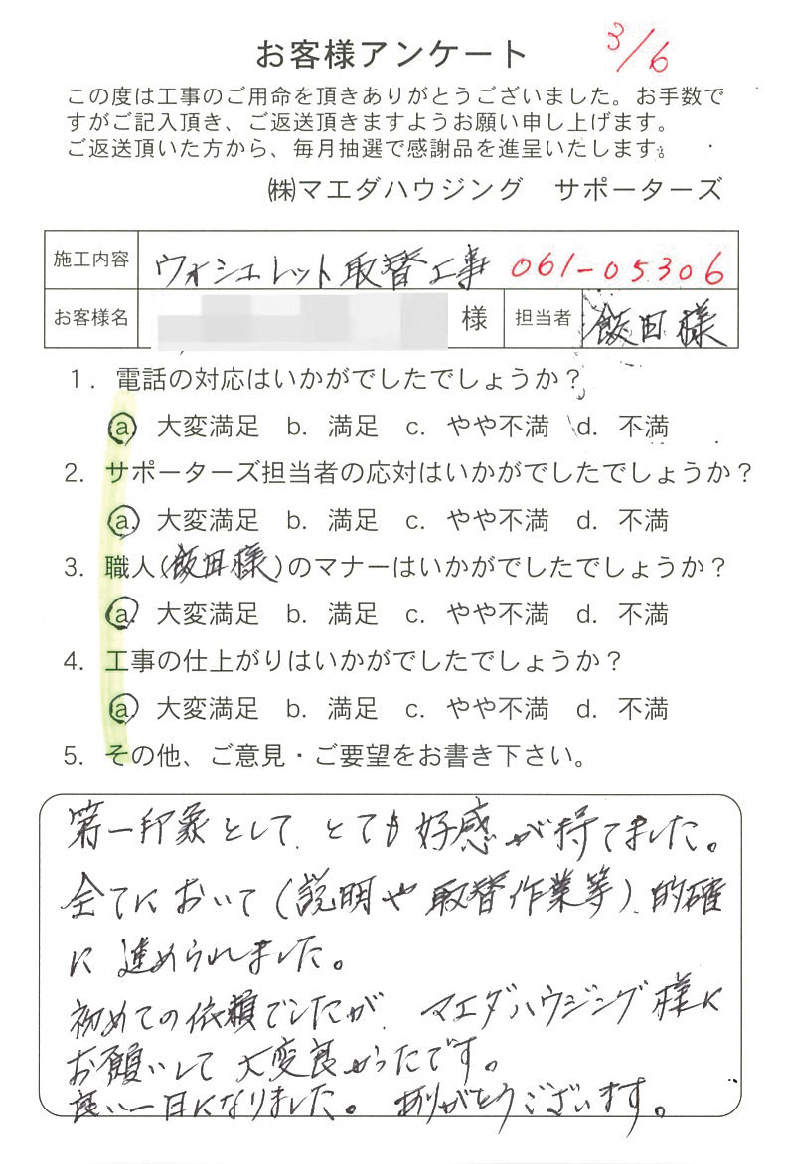 お客様アンケート 3/6
この度は工事のご用命を頂きありがとうございました。お手数で
すがご記入頂き、ご返送頂きますようお願い申し上げます。
ご返送頂いた方から、毎月抽選で感謝品を進呈いたします。
㈱マエダハウジング サポーターズ
施工内容 ウォシュレット取替工事 061-05306
お客様名 様 担当者 飯田様
1. 電話の対応はいかがでしたでしょうか？
a. 大変満足 b. 満足 c. やや不満 d. 不満
2. サポーターズ担当者の応対はいかがでしたでしょうか？
a. 大変満足 b. 満足 c. やや不満 d. 不満
3. 職人(飯田様)のマナーはいかがでしたでしょうか？
a. 大変満足 b. 満足 c. やや不満 d. 不満
4. 工事の仕上がりはいかがでしたでしょうか？
a. 大変満足 b. 満足 c. やや不満 d. 不満
5. その他、ご意見・ご要望をお書き下さい。
第一印象として、とても好感が持てました。
全てにおいて(説明や取替作業等)、的確
に進められました。
初めての依頼でしたが、マエダハウジング様に
お願いして大変良かったです。
良い一日になりました。ありがとうございます。